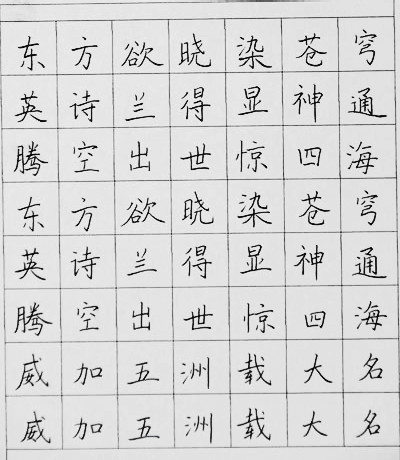 东方欲晓染苍穹
英诗兰得显神通
腾空出世惊四海
东方欲晓染苍穹
英诗兰得显神通
腾空出世惊四海
威加五洲载大名
威加五洲载大名